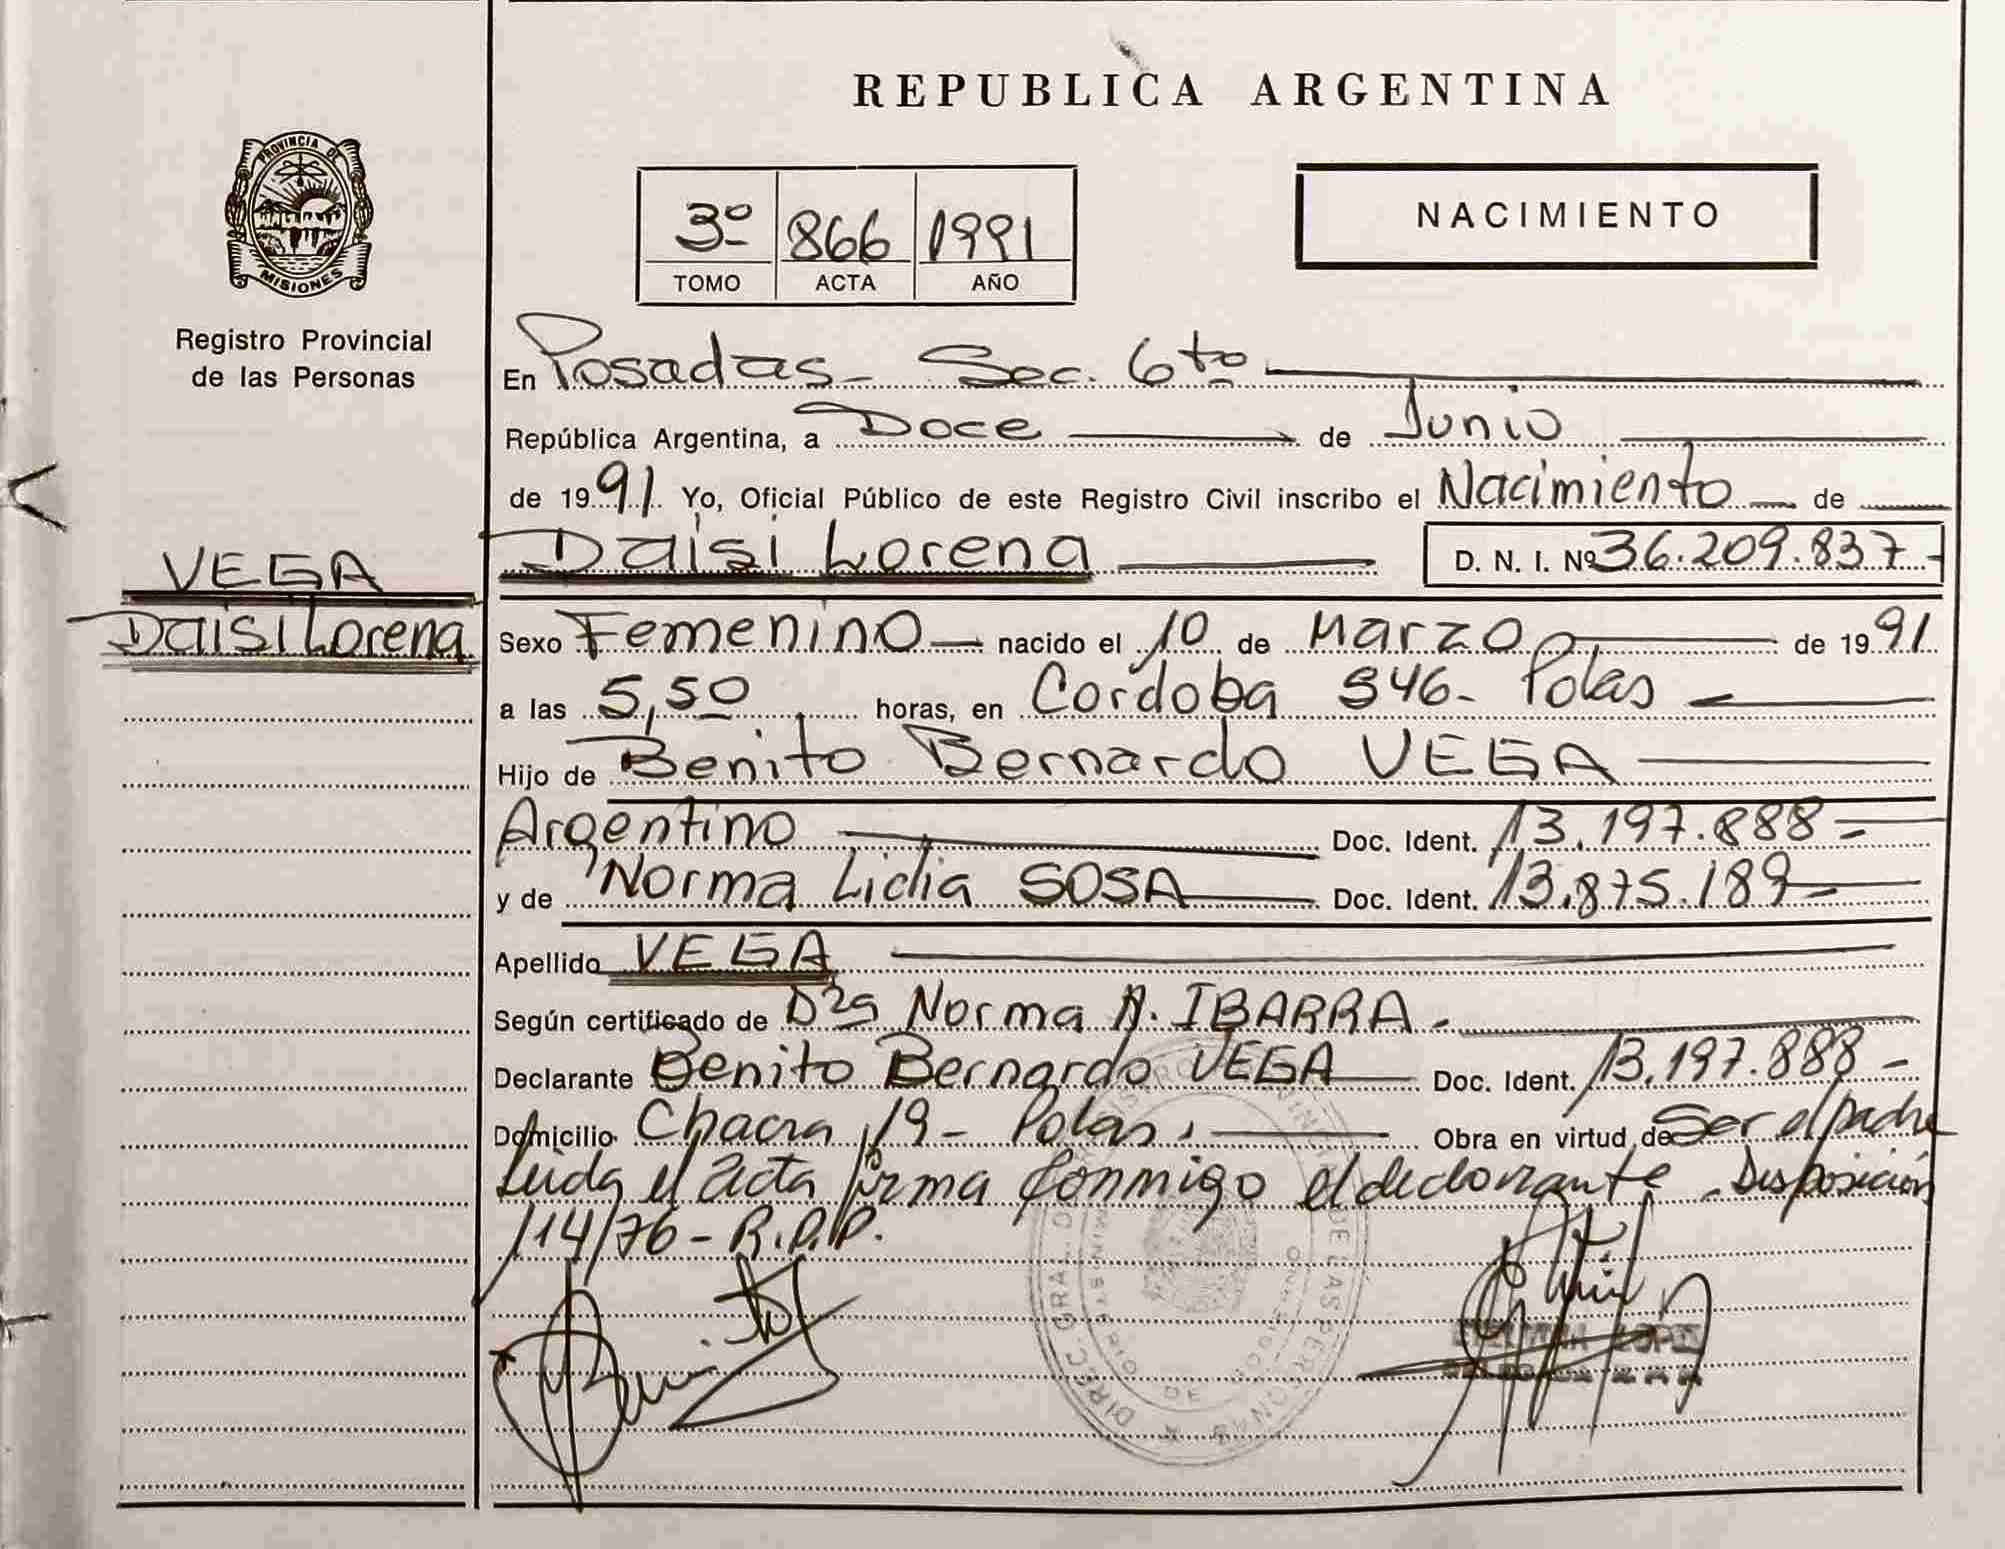 REPUBLICA ARGENTINA
PROVINCIA DE
MISIONES
Registro Provincial
de las Personas
3º 866 1991
TOMO ACTA AÑO
NACIMIENTO
En Posadas - Sec. 6to
República Argentina, a Doce de Junio
de 1991 Yo, Oficial Público de este Registro Civil inscribo el Nacimiento de
Daisi Lorena D. N. I. Nº 36.209.837-
VEGA
Daisi Lorena
Sexo Femenino nacido el 10 de Marzo de 1991
a las 5,50 horas, en Cordoba 346- Pdas
Hijo de Benito Bernardo VEGA
Argentino Doc. Ident. 13.197.888-
y de Norma Lidia SOSA Doc. Ident. 13.875.189-
Apellido VEGA
Según certificado de Dra Norma A. IBARRA.
Declarante Benito Bernardo VEGA Doc. Ident. 13.197.888-
Domicilio Chacra 19- Pdas. Obra en virtud de Ser el padre
Leida el acta firma conmigo el declarante. Disposición
114/76- R.P.P.
DIREC. GRAL. DE LAS PERSONAS